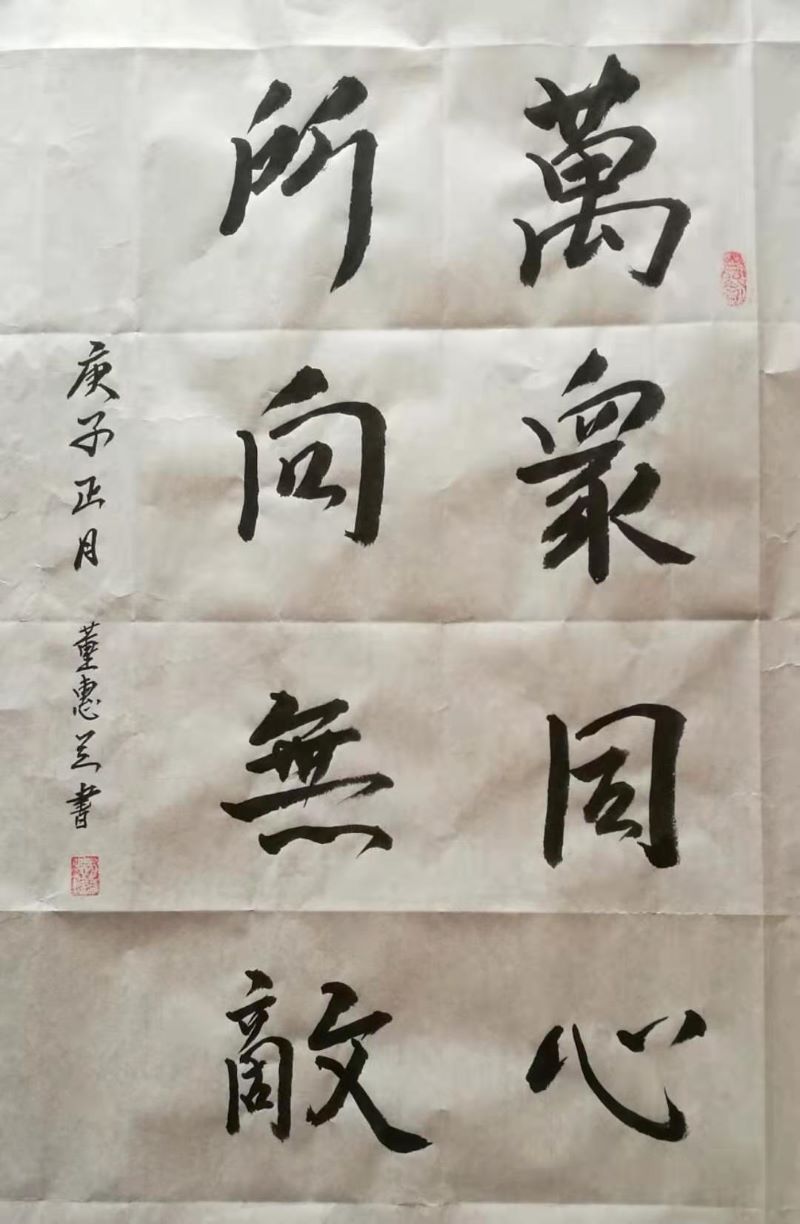 萬眾同心
所向無敵
庚子正月 董惠兰書